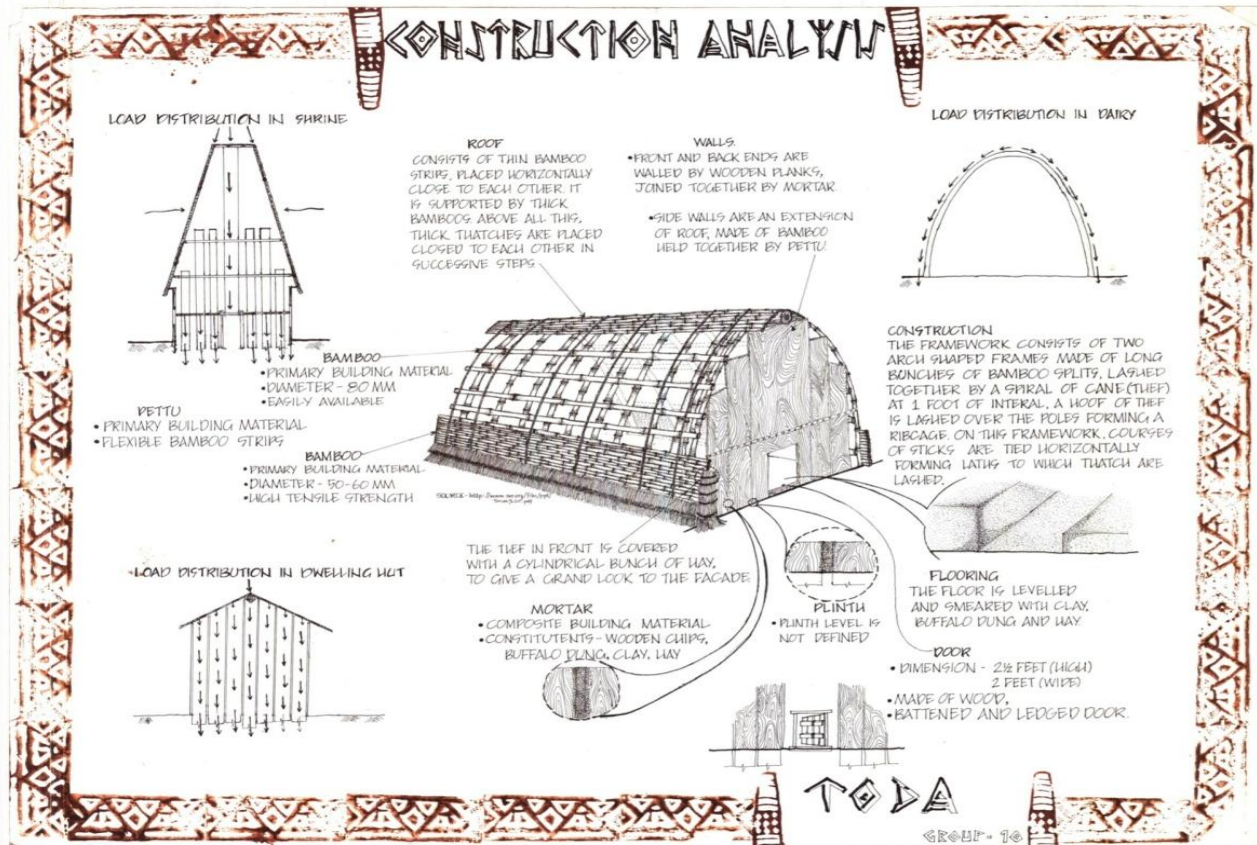 CONSTRUCTION ANALYSIS
LOAD DISTRIBUTION IN SHRINE
ROOF
CONSISTS OF THIN BAMBOO
STRIPS, PLACED HORIZONTALLY
CLOSE TO EACH OTHER. IT
IS SUPPORTED BY THICK
BAMBOOS. ABOVE ALL THIS,
THICK THATCHES ARE PLACED
CLOSED TO EACH OTHER IN
SUCCESSIVE STEPS
WALLS.
•FRONT AND BACK ENDS ARE
WALLED BY WOODEN PLANKS,
JOINED TOGETHER BY MORTAR.
•SIDE WALLS ARE AN EXTENSION
OF ROOF, MADE OF BAMBOO
HELD TOGETHER BY PETTU.
LOAD DISTRIBUTION IN DAIRY
BAMBOO
•PRIMARY BUILDING MATERIAL
•DIAMETER - 80 MM
•EASILY AVAILABLE
PETTU
•PRIMARY BUILDING MATERIAL
•FLEXIBLE BAMBOO STRIPS
BAMBOO
•PRIMARY BUILDING MATERIAL
•DIAMETER - 50-60 MM
•HIGH TENSILE STRENGTH
CONSTRUCTION
THE FRAMEWORK CONSISTS OF TWO
ARCH SHAPED FRAMES MADE OF LONG
BUNCHES OF BAMBOO SPLITS, LASHED
TOGETHER BY A SPIRAL OF CANE (THEF)
AT 1 FOOT OF INTERAL, A HOOF OF THEF
IS LASHED OVER THE POLES FORMING A
RIBCAGE. ON THIS FRAMEWORK, COURSES
OF STICKS ARE TIED HORIZONTALLY
FORMING LATHS TO WHICH THATCH ARE
LASHED.
SOURCE - http://www
THE TIEF IN FRONT IS COVERED
WITH A CYLINDRICAL BUNCH OF HAY,
TO GIVE A GRAND LOOK TO THE FACADE
LOAD DISTRIBUTION IN DWELLING HUT
MORTAR
•COMPOSITE BUILDING MATERIAL
•CONSTITUTENTS - WOODEN CHIPS,
BUFFALO DUNG, CLAY, HAY
PLINTH
•PLINTH LEVEL IS
NOT DEFINED
FLOORING
THE FLOOR IS LEVELLED
AND SMEARED WITH CLAY,
BUFFALO DUNG AND HAY.
DOOR
•DIMENSION - 2½ FEET (HIGH)
2 FEET (WIDE)
•MADE OF WOOD,
•BATTENED AND LEDGED DOOR.
TODA
GROUP - 10